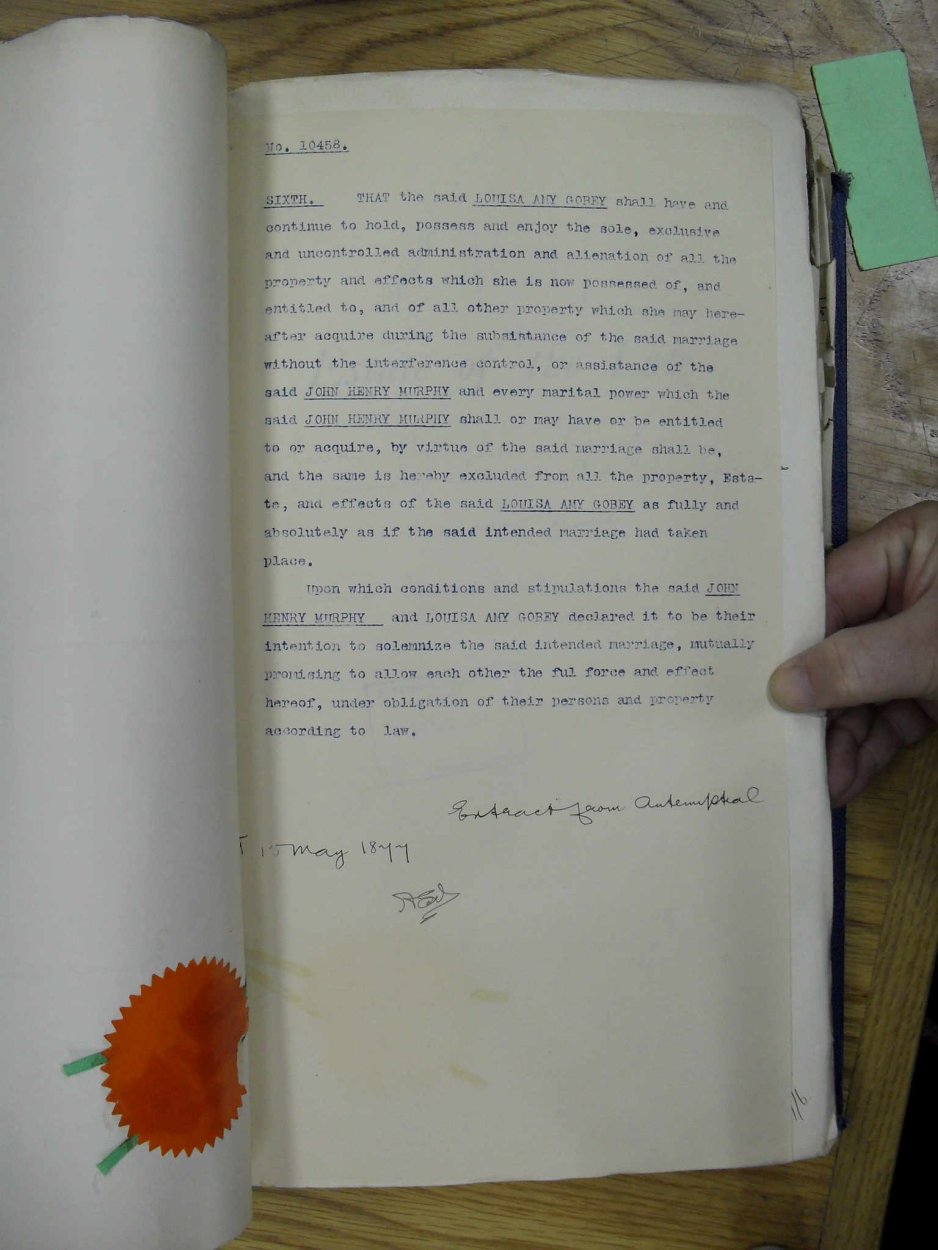 No. 10458.
SIXTH. THAT the said LOUISA AMY GOBEY shall have and
continue to hold, possess and enjoy the sole, exclusive
and uncontrolled administration and alienation of all the
property and effects which she is now possessed of, and
entitled to, and of all other property which she may here-
after acquire during the subsistance of the said marriage
without the interference control, or assistance of the
said JOHN HENRY MURPHY and every marital power which the
said JOHN HENRY MURPHY shall or may have or be entitled
to or acquire, by virtue of the said marriage shall be,
and the same is hereby excluded from all the property, Esta-
te, and effects of the said LOUISA AMY GOBEY as fully and
absolutely as if the said intended marriage had taken
place.
Upon which conditions and stipulations the said JOHN
HENRY MURPHY and LOUISA AMY GOBEY declared it to be their
intention to solemnize the said intended marriage, mutually
promising to allow each other the ful force and effect
hereof, under obligation of their persons and property
according to law.
Extract from Antenuptial
15 May 1877
1/6